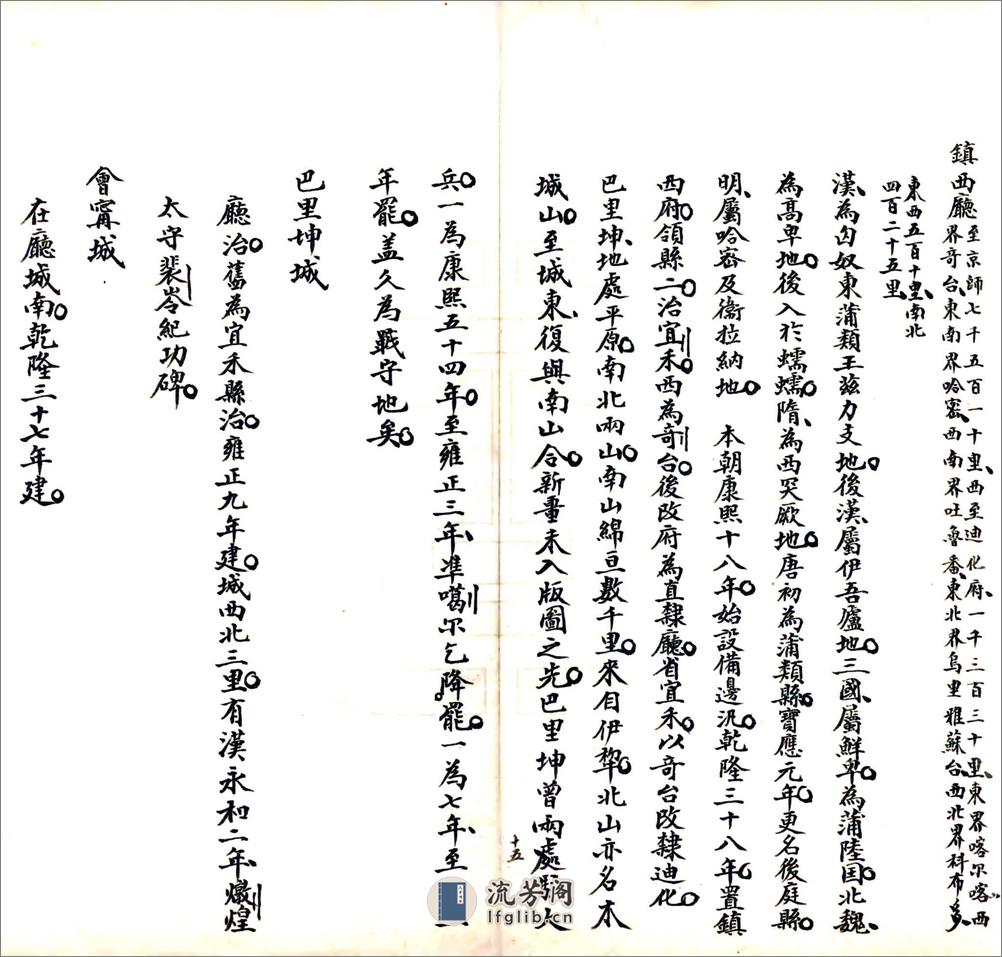 鎮西廳至京師七千五百一十里西至迪化府一千三百三十里東界喀尔喀西
界竒台東南界哈宻西南界吐魯番東北界烏里雅蘇台西北界科布多
東西五百十里南北
四百二十五里
漢為匈奴東蒲類王兹力支地後漢屬伊吾廬地三國屬鮮卑為蒲陸囯北魏
為高卑地後入於蠕蠕隋為西突厥地唐初為蒲類縣寶應元年更名後庭縣
明屬哈宻及衛拉納地 本朝康熙十八年始設備邊汛乾隆三十八年置鎮
西府領縣二治宜禾西為竒台後改府為直隸廳省宜禾以竒台改隸迪化
巴里坤地處平原南北兩山南山綿亘數千里來自伊犂北山亦名木
城山至城東復與南山合新畺未入版圖之先巴里坤曾兩處駐大
兵一為康熙五十四年至雍正三年凖噶尔乞降罷一為七年至
年罷盖久為戰守地矣
巴里坤城
廳治舊為宜禾縣治雍正九年建城西北三里有漢永和二年燉煌
太守裴岑紀功碑
會甯城
在廳城南乾隆三十七年建
十五
流芳阁
lfglib.cn